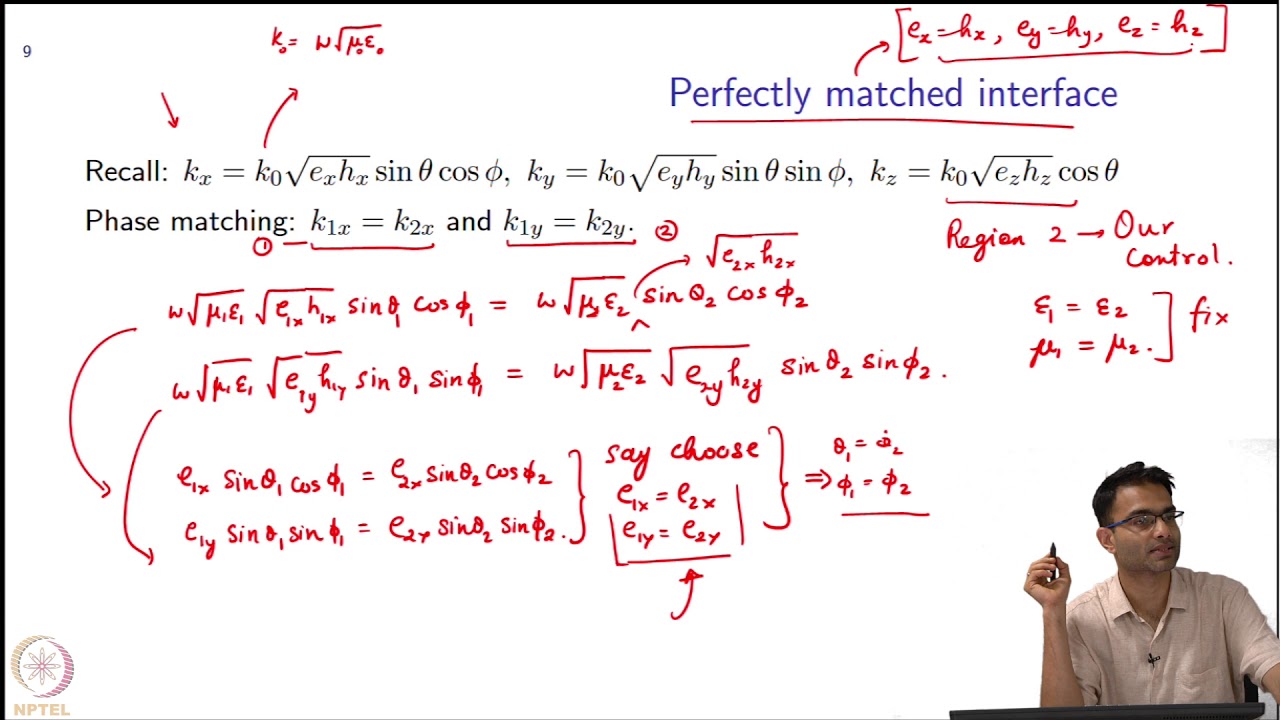 9
k₀ = ω√μ₀ε₀
[eₓ = hₓ, e_y = h_y, e_z = h_z]
Perfectly matched interface
Recall: kₓ = k₀√(eₓhₓ) sin θ cos ϕ, k_y = k₀√(e_yh_y) sin θ sin ϕ, k_z = k₀√(e_zh_z) cos θ
Phase matching: k₁ₓ = k₂ₓ and k₁y = k₂y.
① ②
Region 2 → Our control.
√(e₂ₓh₂ₓ)
ω√(μ₁ε₁) √(e₁ₓh₁ₓ) sinθ₁ cosϕ₁ = ω√(μ₂ε₂) sinθ₂ cosϕ₂
ε₁ = ε₂
μ₁ = μ₂. ] fix
ω√(μ₁ε₁) √(e₁y h₁y) sinθ₁ sinϕ₁ = ω√(μ₂ε₂) √(e₂y h₂y) sinθ₂ sinϕ₂.
e₁ₓ sinθ₁ cosϕ₁ = e₂ₓ sinθ₂ cosϕ₂
e₁y sinθ₁ sinϕ₁ = e₂y sinθ₂ sinϕ₂.
say choose
e₁ₓ = e₂ₓ
e₁y = e₂y
⇒ θ₁ = θ₂
ϕ₁ = ϕ₂
NPTEL